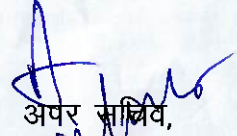 अपर सचिव,